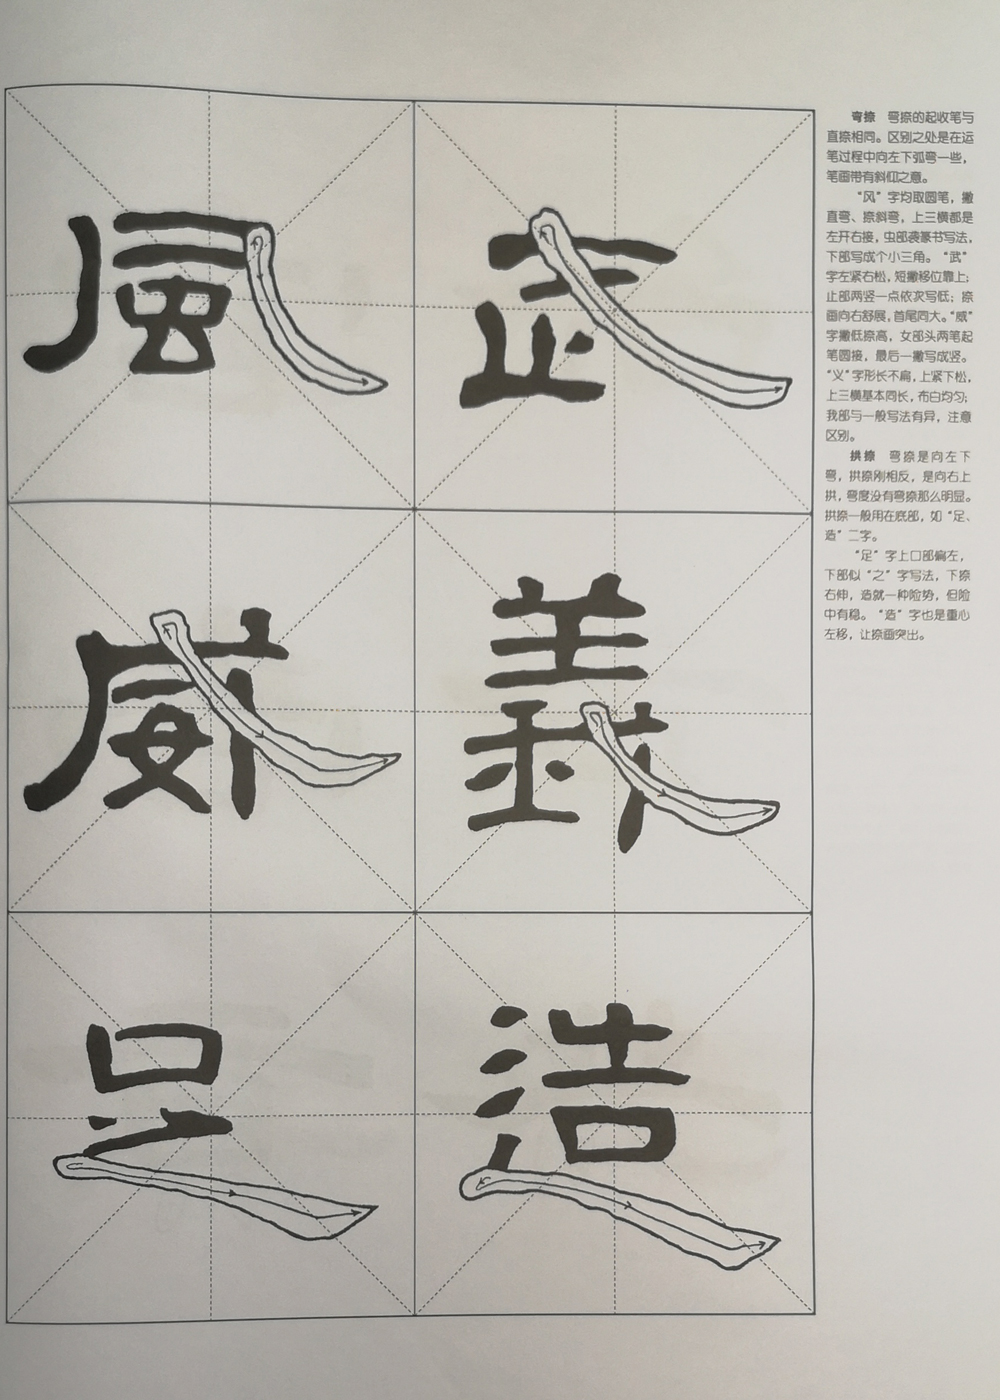 風 武
威 義
足 造
弯捺 弯捺的起收笔与
直捺相同。区别之处是在运
笔过程中向左下弧弯一些，
笔画带有斜仰之意。
“风”字均取圆笔，撇
直弯、捺斜弯，上三横都是
左开右接，虫部袭篆书写法，
下部写成个小三角。“武”
字左紧右松，短撇移位靠上；
止部两竖一点依次写低；捺
画向右舒展，首尾同大。“威”
字撇低捺高，女部头两笔起
笔圆接，最后一撇写成竖。
“义”字形长不扁，上紧下松，
上三横基本同长，布白均匀；
我部与一般写法有异，注意
区别。
拱捺 弯捺是向左下
弯，拱捺刚相反，是向右上
拱，弯度没有弯捺那么明显。
拱捺一般用在底部，如“足、
造”二字。
“足”字上口部偏左，
下部似“之”字写法，下捺
右伸，造就一种险势，但险
中有稳。“造”字也是重心
左移，让捺画突出。